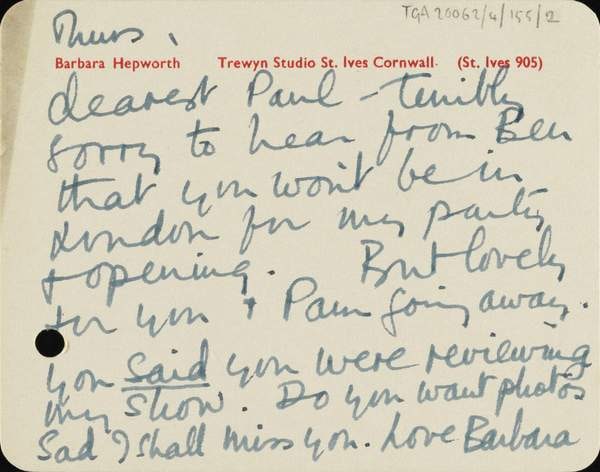 TGA 20062/4/155/2
Thurs,
Barbara Hepworth Trewyn Studio St. Ives Cornwall. (St. Ives 905)
dearest Paul - terribly
sorry to hear from Ben
that you won't be in
London for my party
& opening. But lovely
for you & Pam going away.
you said you were reviewing
my show. Do you want photos
Sad I shall miss you. Love Barbara